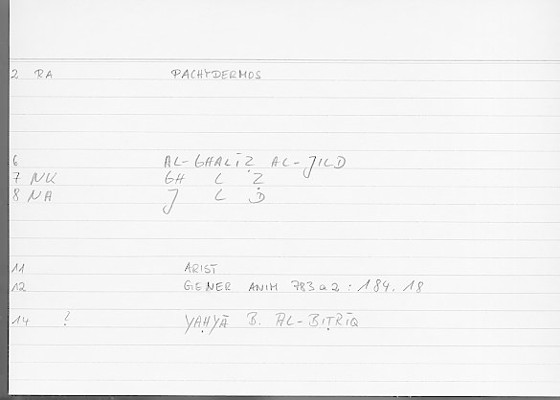 2 RA PACHYDERMOS
6 AL-GHALĪẒ AL-JILD
7 NK GH L Ẓ
8 NA J L D
11 ARIST
12 GENER ANIM 783a2 : 184.18
14 ? YAḤYĀ B. AL-BIṬRĪQ